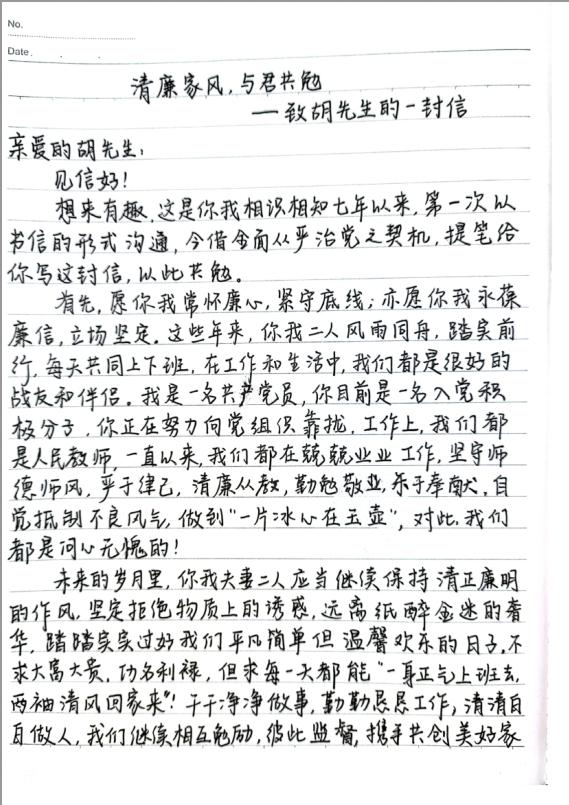 No.
Date.
清廉家风,与君共勉
—致胡先生的一封信
亲爱的胡先生:
见信好!
想来有趣,这是你我相识相知七年以来,第一次以
书信的形式沟通,今借全面从严治党之契机,提笔给
你写这封信,以此共勉。
首先,愿你我常怀廉心,紧守底线;亦愿你我永葆
廉信,立场坚定。这些年来,你我二人风雨同舟,踏实前
行,每天共同上下班,在工作和生活中,我们都是很好的
战友和伴侣。我是一名共产党员,你目前是一名入党积
极分子,你正在努力向党组织靠拢,工作上,我们都
是人民教师,一直以来,我们都在兢兢业业工作,坚守师
德师风,严于律己,清廉从教,勤勉敬业,乐于奉献,自
觉抵制不良风气,做到"一片冰心在玉壶",对此,我们
都是问心无愧的!
未来的岁月里,你我夫妻二人应当继续保持清正廉明
的作风,坚定拒绝物质上的诱惑,远离纸醉金迷的奢
华,踏踏实实过好我们平凡简单但温馨欢乐的日子,不
求大富大贵,功名利禄,但求每一天都能"一身正气上班去,
两袖清风回家来"!干干净净做事,勤勤恳恳工作,清清白
白做人,我们继续相互勉励,彼此监督,携手共创美好家